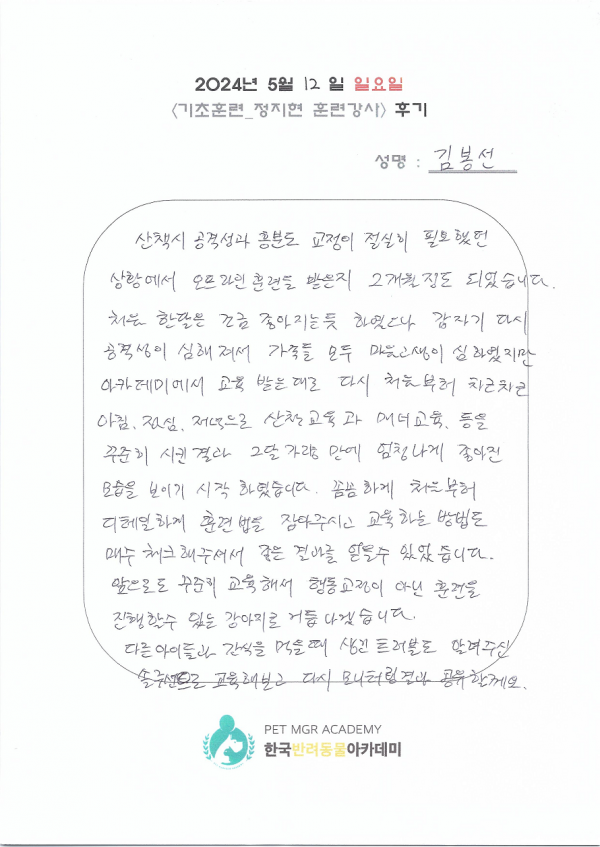 2024년 5월 12 일 일요일
<기초훈련_정지현 훈련강사> 후기
성명 : 김봉선
산책시 공격성과 흥분도 교정이 절실히 필요했던
상황에서 오프라인 훈련을 받은지 2개월 정도 되었습니다.
처음 한달은 조금 좋아지는듯 하였으나 갑자기 다시
공격성이 심해져서 가족들 모두 마음고생이 심하였지만
아카데미에서 교육 받은대로 다시 처음부터 차근차근
아침, 점심, 저녁으로 산책교육과 매너교육, 등을
꾸준히 시킨 결과 2달가량 만에 엄청나게 좋아진
모습을 보이기 시작 하였습니다. 꼼꼼하게 처음부터
디테일하게 훈련법을 잡아주시고 교육하는 방법도
매주 체크해주셔서 좋은 결과를 얻을수 있었습니다.
앞으로도 꾸준히 교육해서 행동교정이 아닌 훈련을
진행할수 있는 강아지로 거듭나겠습니다.
다른아이들과 간식을 먹을때 생긴 트러블도 알려주신
솔루션으로 교육해보고 다시 모니터링결과 공유할게요.
PET MGR ACADEMY
한국반려동물아카데미